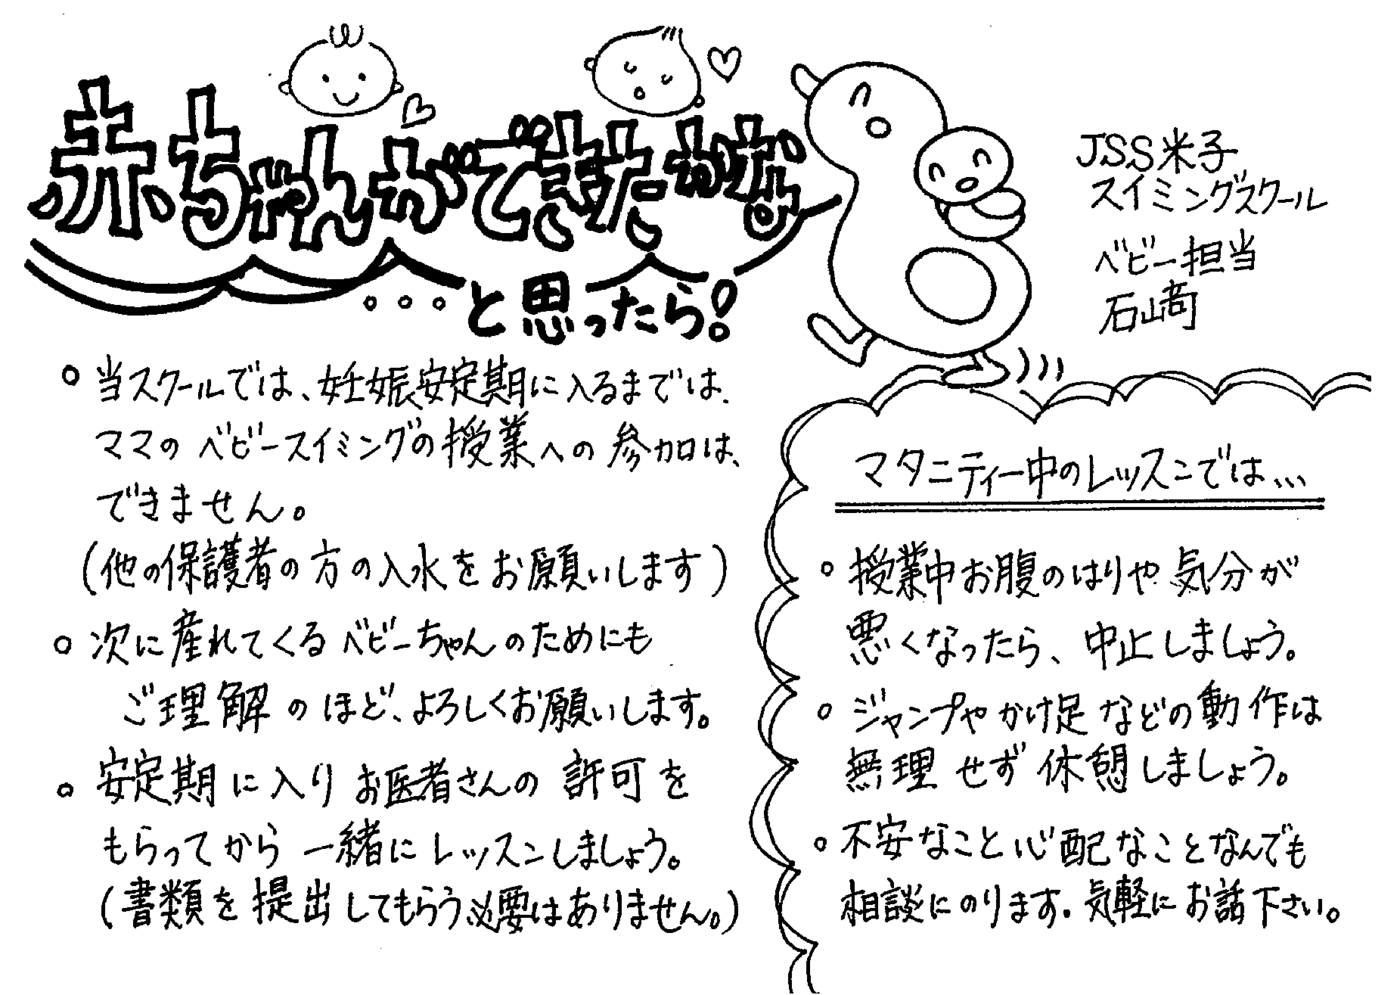 赤ちゃんができたかな
...と思ったら!
JSS米子
スイミングスクール
ベビー担当
石﨑
。当スクールでは、妊娠安定期に入るまでは、
ママのベビースイミングの授業への参加は、
できません。
(他の保護者の方の入水をお願いします)
。次に産れてくるベビーちゃんのためにも
ご理解のほど、よろしくお願いします。
。安定期に入りお医者さんの許可を
もらってから一緒にレッスンしましょう。
(書類を提出してもらう必要はありません。)
マタニティー中のレッスンでは...
。授業中お腹のはりや気分が
悪くなったら、中止しましょう。
。ジャンプやかけ足などの動作は
無理せず休憩しましょう。
。不安なこと心配なことなんでも
相談にのります。気軽にお話下さい。